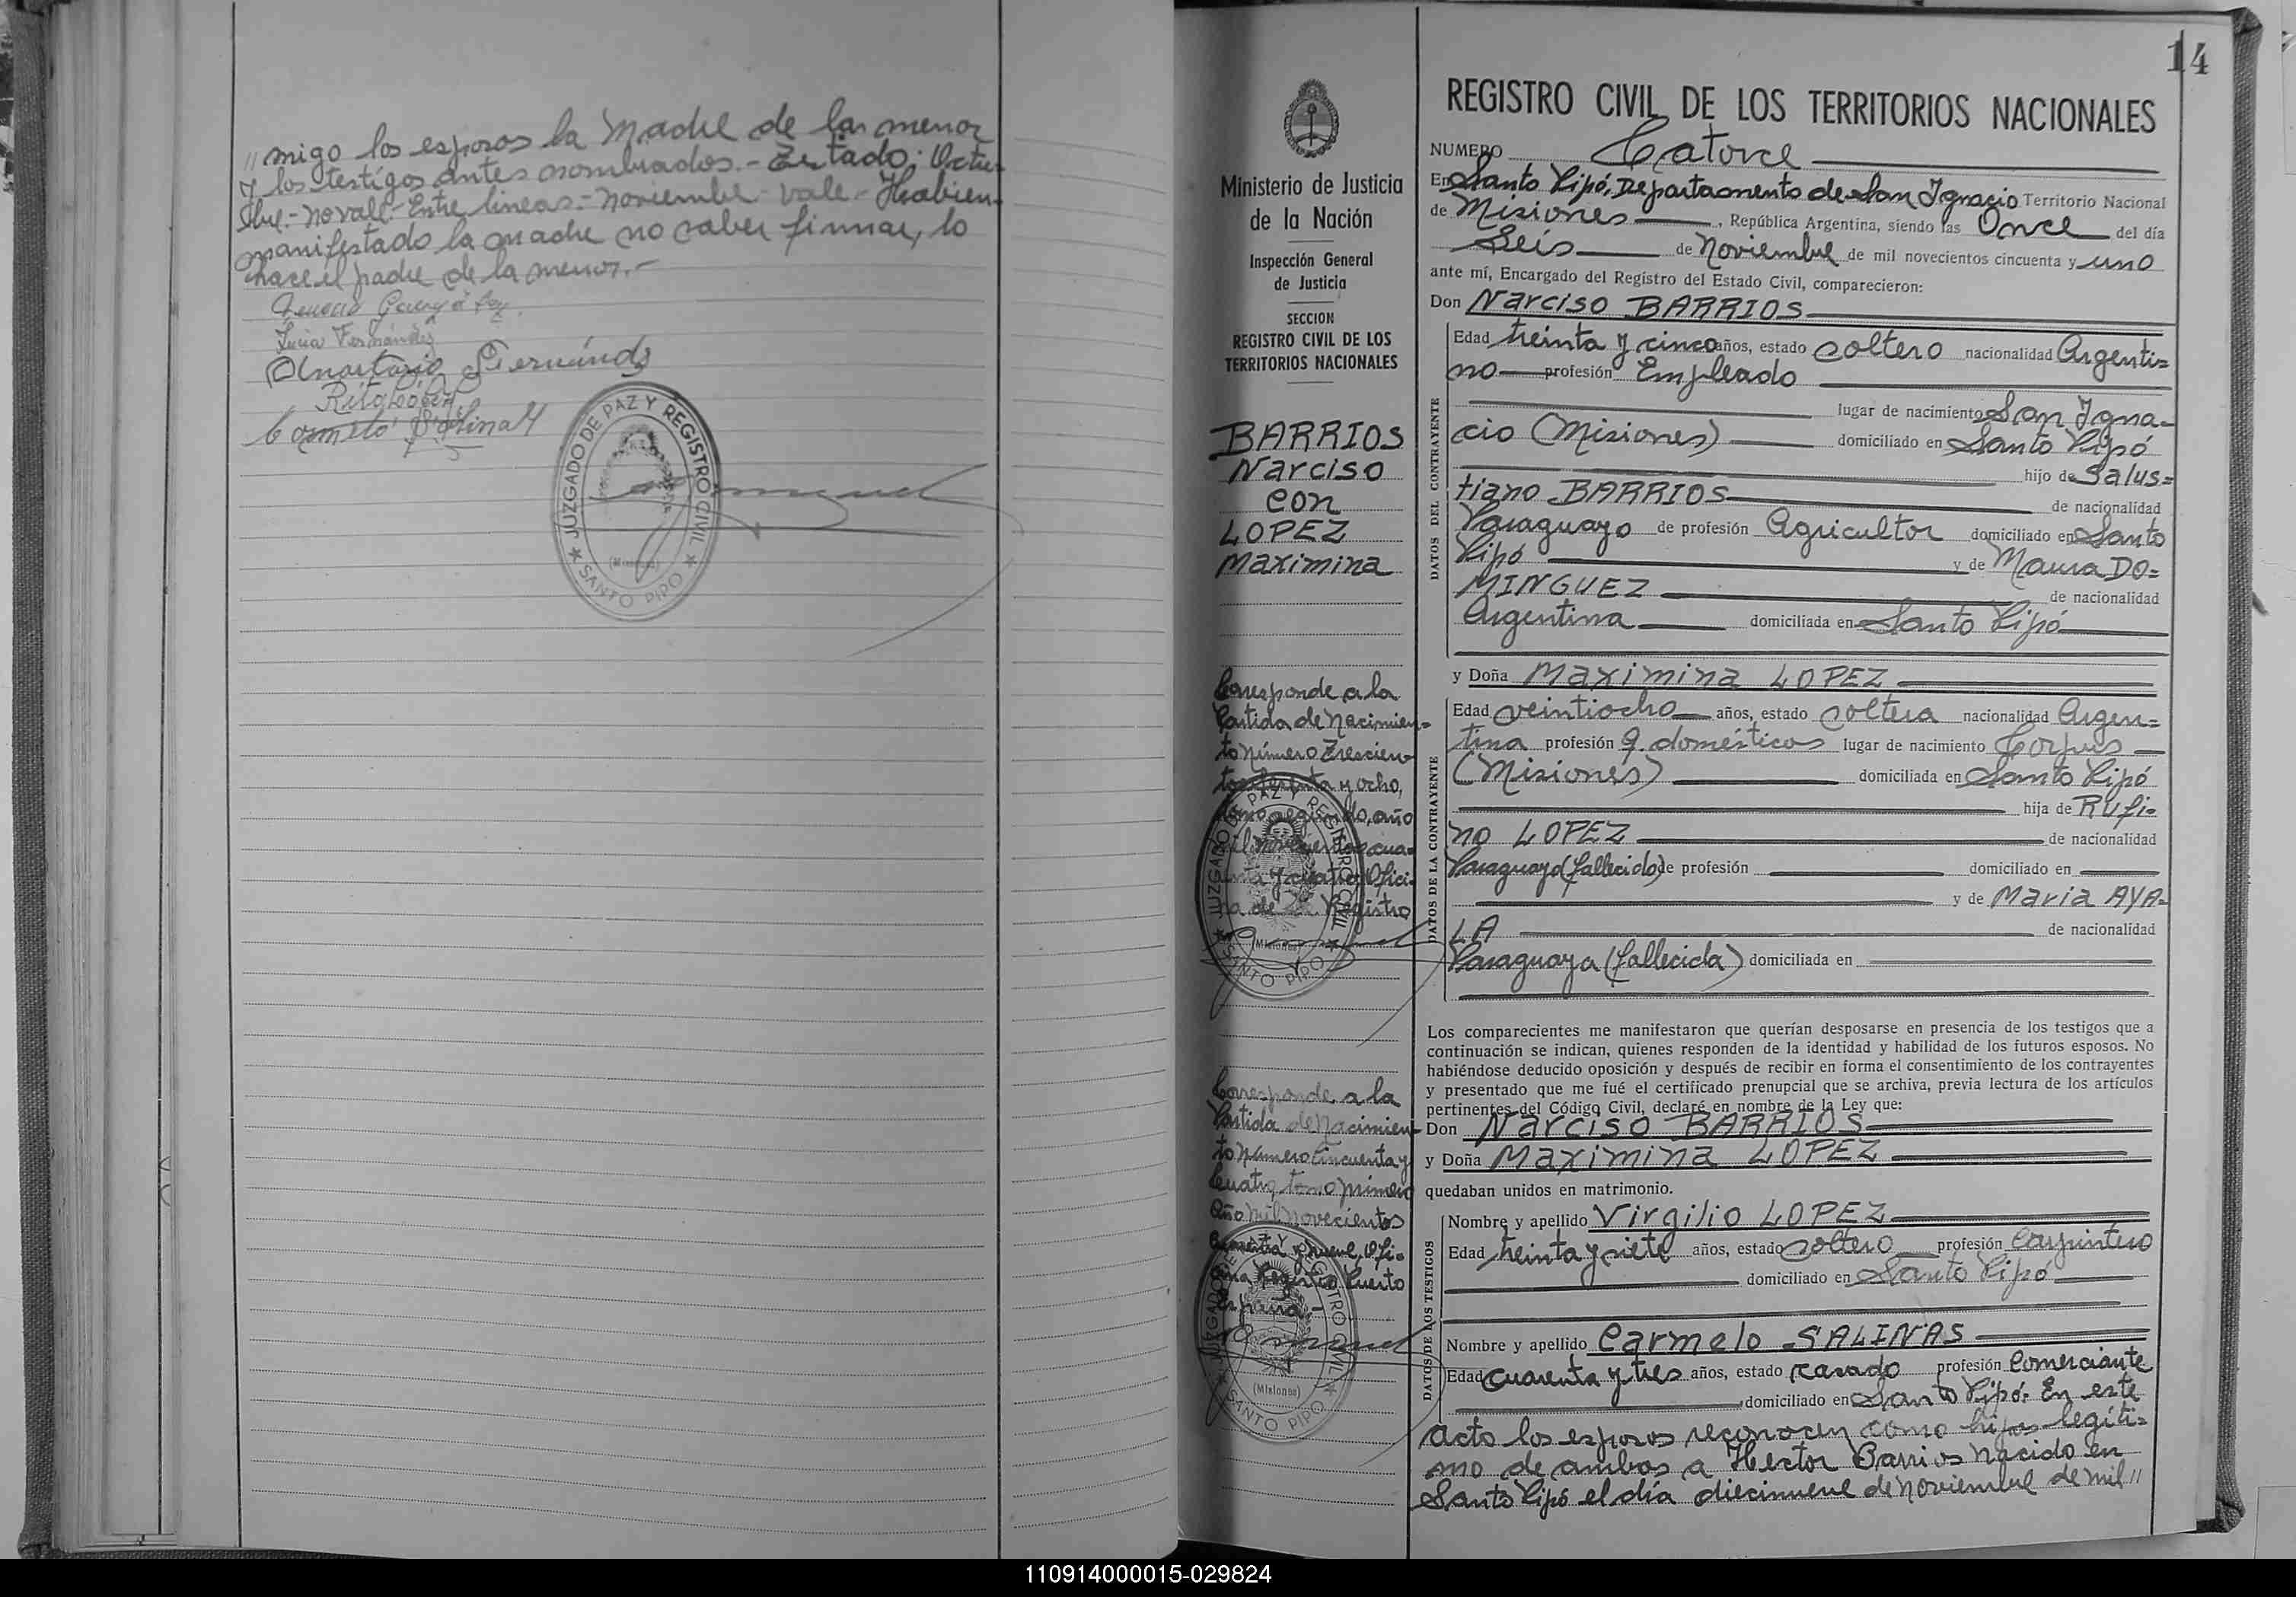 "migo los esposos la Madre de la menor
y los testigos antes nombrados.- Testado: Octu-
bre.- no vale.- Entre lineas.- noviembre- vale.- Habien-
manifestado la madre no saber firmar, lo
hace el padre de la menor.-
Lucia Fernández
Anastacio Fernández
Rita López
Carmelo Salinas
JUZGADO DE PAZ Y REGISTRO CIVIL
(Misiones)
SANTO PIPO
14
Ministerio de Justicia
de la Nación
Inspección General
de Justicia
SECCION
REGISTRO CIVIL DE LOS
TERRITORIOS NACIONALES
BARRIOS
Narciso
con
LOPEZ
Maximina
Corresponde a la
Partida de Nacimien=
to número Trescien
tos y ocho,
tomo segundo, año
mil novecientos cua=
renta y cuatro Ofici=
na de Registro
JUZGADO DE PAZ Y REGISTRO CIVIL
(Misiones)
SANTO PIPO
Corresponde a la
Partida de Nacimien
to número Cincuenta y
Cuatro, tomo primero
año mil novecientos
cuarenta y nueve, Ofi=
cina Registro Puerto
España.-
JUZGADO DE PAZ Y REGISTRO CIVIL
(Misiones)
SANTO PIPO
REGISTRO CIVIL DE LOS TERRITORIOS NACIONALES
NUMERO Catorce
En Santo Pipó, Departamento de San Ignacio Territorio Nacional
de Misiones , República Argentina, siendo las Once del día
Seis de Noviembre de mil novecientos cincuenta y uno
ante mí, Encargado del Registro del Estado Civil, comparecieron:
Don Narciso BARRIOS
DATOS DEL CONTRAYENTE
Edad treinta y cinco años, estado soltero nacionalidad Argenti=
no profesión Empleado
lugar de nacimiento San Igna=
cio (Misiones) domiciliado en Santo Pipó
hijo de Salus=
tiano BARRIOS de nacionalidad
Paraguayo de profesión Agricultor domiciliado en Santo
Pipó y de Maura DO=
MINGUEZ de nacionalidad
Argentina domiciliada en Santo Pipó
y Doña Maximina LOPEZ
DATOS DE LA CONTRAYENTE
Edad veintiocho años, estado soltera nacionalidad Argen=
tina profesión q. domésticos lugar de nacimiento Corpus
(Misiones) domiciliada en Santo Pipó
hija de Rufi=
no LOPEZ de nacionalidad
Paraguayo (fallecido) de profesión domiciliado en
y de Maria AYA=
LA de nacionalidad
Paraguaya (fallecida) domiciliada en
Los comparecientes me manifestaron que querían desposarse en presencia de los testigos que a
continuación se indican, quienes responden de la identidad y habilidad de los futuros esposos. No
habiéndose deducido oposición y después de recibir en forma el consentimiento de los contrayentes
y presentado que me fué el certificado prenupcial que se archiva, previa lectura de los artículos
pertinentes del Código Civil, declaré en nombre de la Ley que:
Don Narciso BARRIOS
y Doña Maximina LOPEZ
quedaban unidos en matrimonio.
DATOS DE LOS TESTIGOS
Nombre y apellido Virgilio LOPEZ
Edad treinta y siete años, estado soltero profesión Carpintero
domiciliado en Santo Pipó
Nombre y apellido Carmelo SALINAS
Edad cuarenta y tres años, estado casado profesión Comerciante
domiciliado en Santo Pipó. En este
acto los esposos reconocen como hijos legíti=
mo de ambos a Hector Barrios nacido en
Santo Pipó el día diecinueve de noviembre de mil"
110914000015-029824